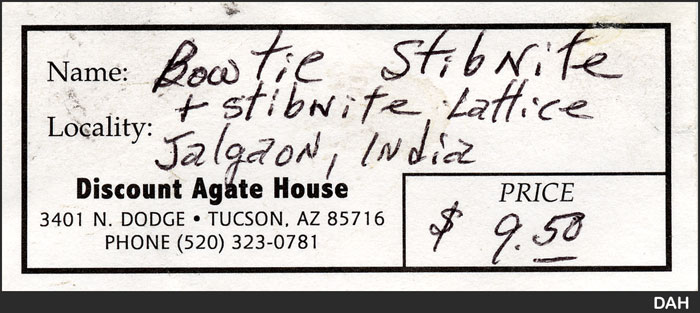 Name: Bowtie Stibnite
+ stibnite Lattice
Locality: Jalgaon, India
Discount Agate House
3401 N. DODGE • TUCSON, AZ 85716
PHONE (520) 323-0781
PRICE
$ 9.50
DAH